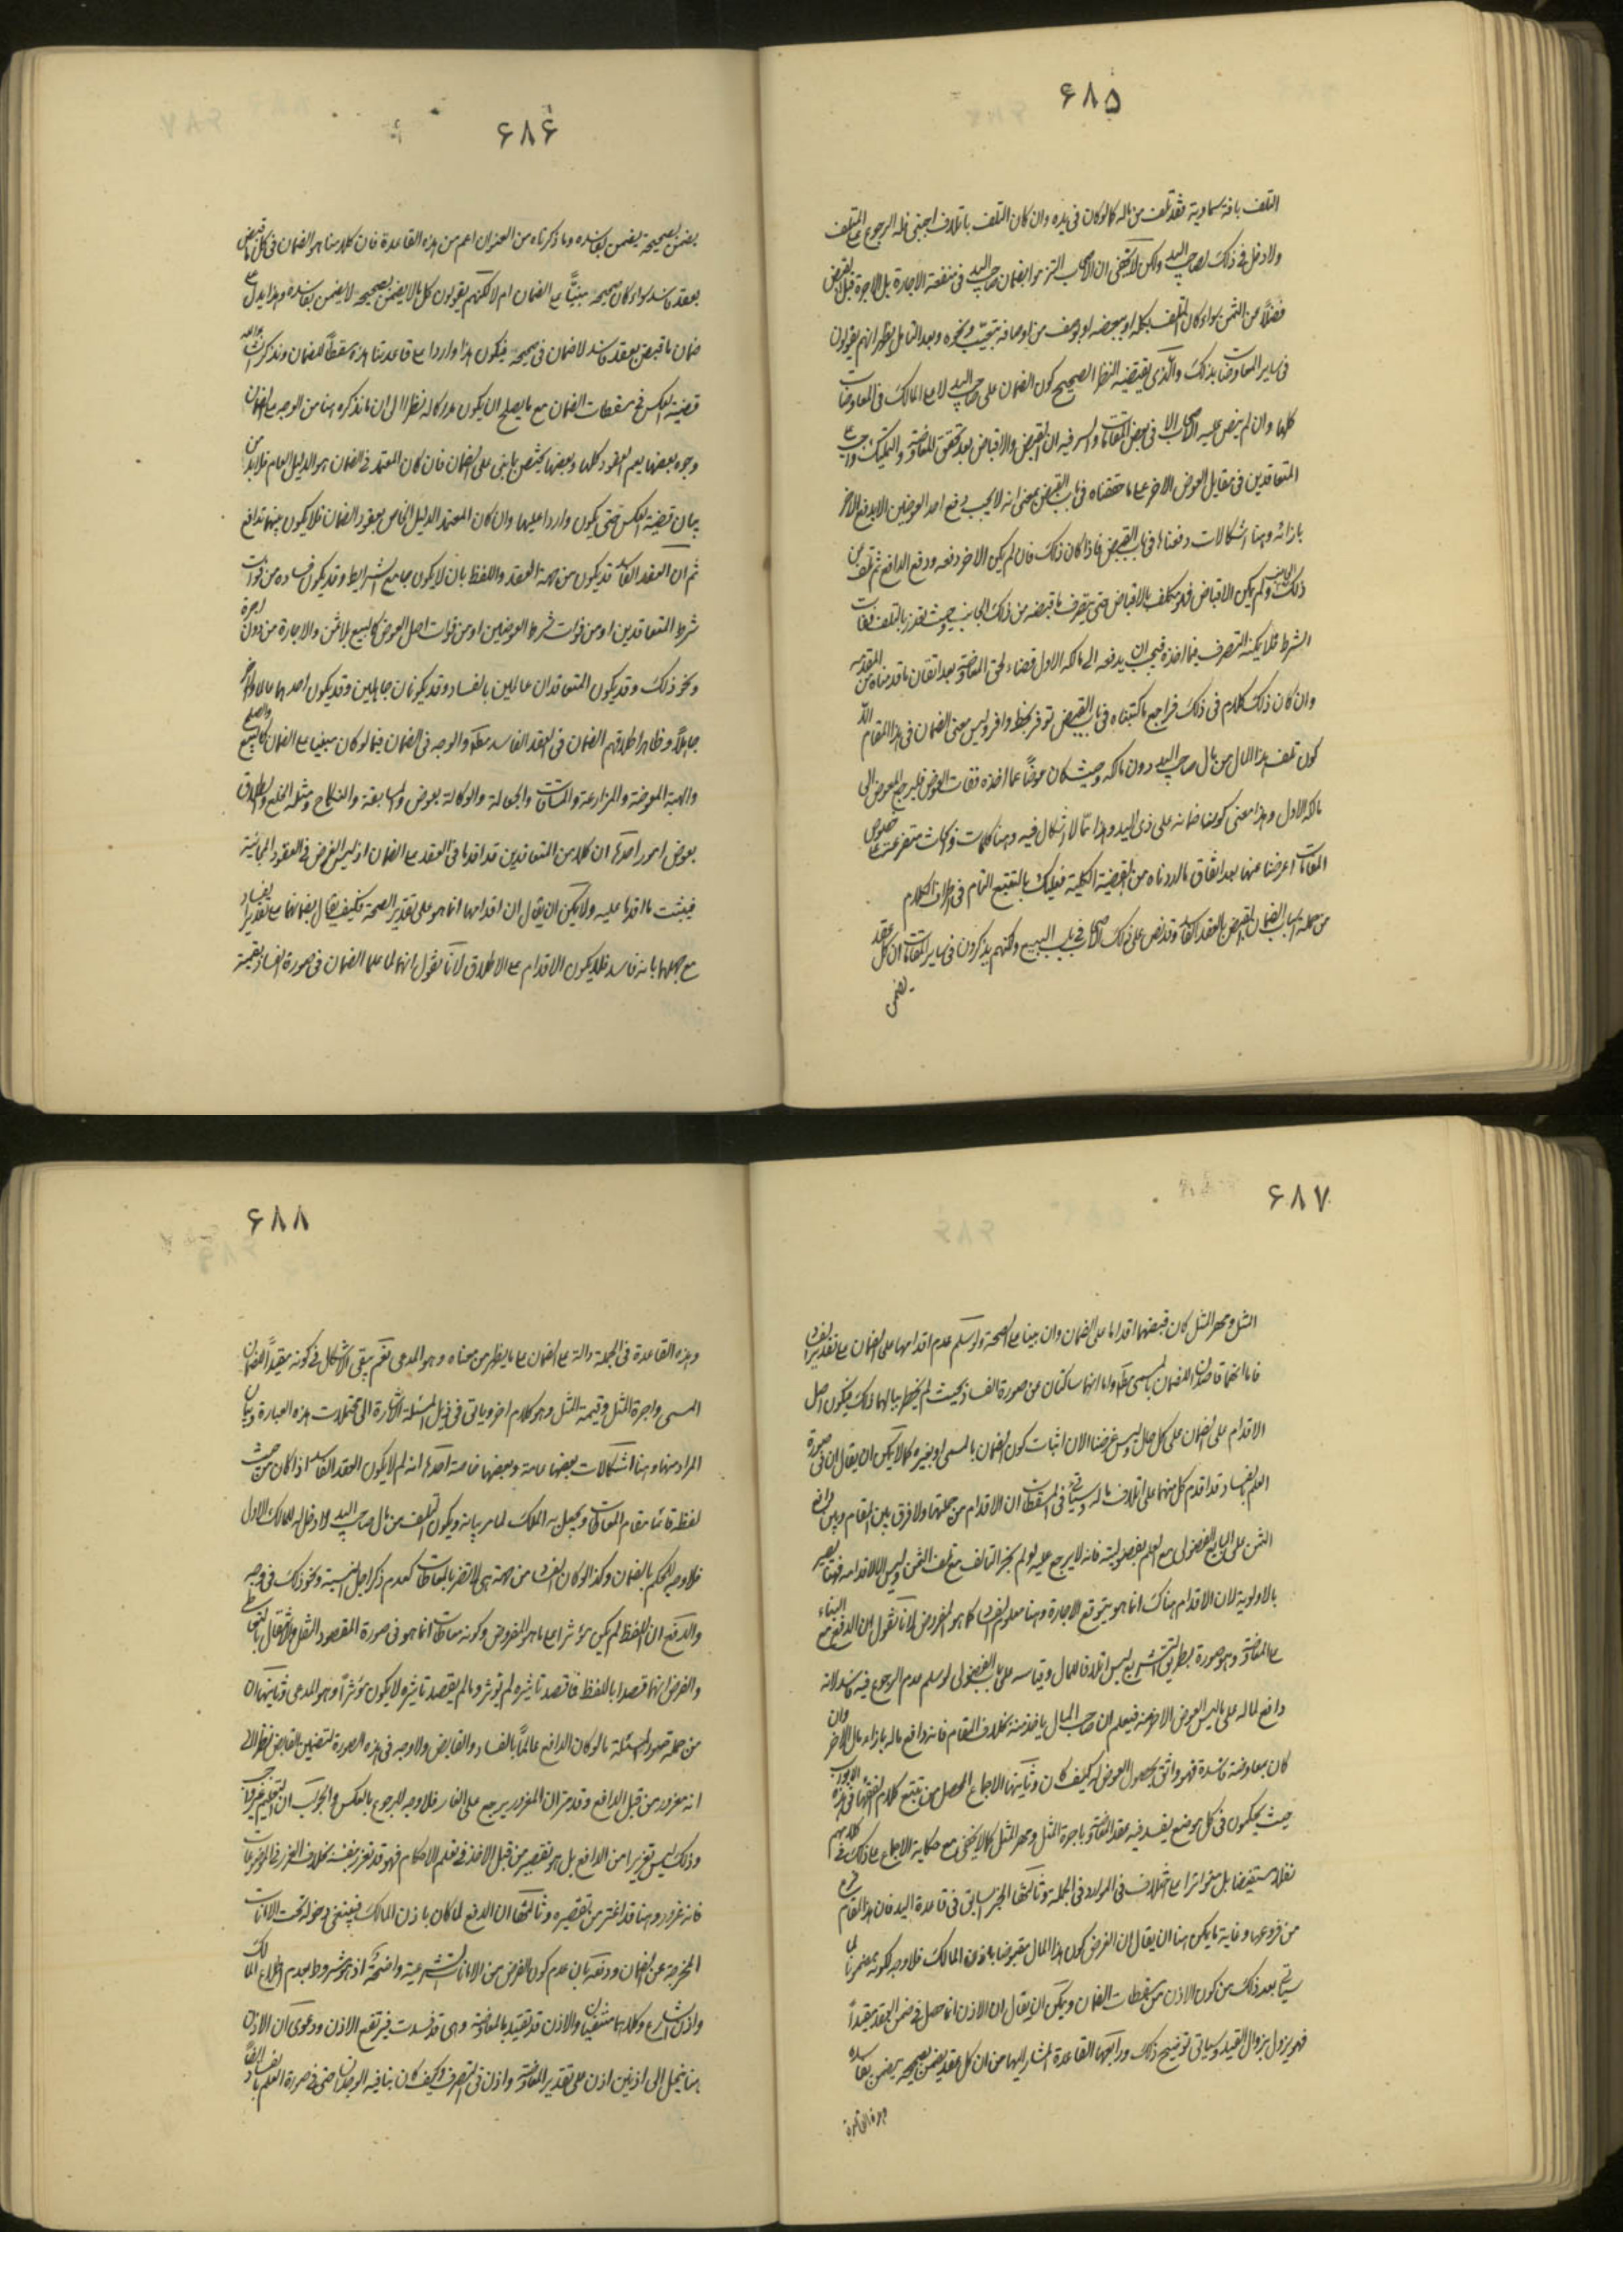 ۶۸۵
التلف بافة سماوية فقد تلف من ماله كما لو كان في يده وان كان التلف باتلاف اجنبي فله الرجوع على المتلف
ولا دخل في ذلك لصاحب اليد ولكن لا يخفى ان الاصحاب التزموا بضمان صاحب اليد في منفعة الاجارة بل الاجرة قبل القبض
فضلا عن الثمن سواء كان التلف بكله او ببعضه او بوصف من اوصافه بتعيب ونحوه وبعد التامل يظهر انهم يقولون
في ساير المعاوضات بذلك والذي يقتضيه النظر الصحيح كون الضمان على صاحب اليد لا على المالك في المعاوضات
كلها وان لم ينص عليه الاصحاب الا في بعض المقامات والسر فيه ان القبض والاقباض بعد تحقق المعاوضة والتمليك واجب على
المتعاقدين في مقابل العوض الاخر على ما حققناه في باب القبض بمعنى انه لا يجب دفع احد العوضين الا بدفع الاخر
بازائه وهنا اشكالات دفعناها في باب القبض فاذا كان ذلك فان لم يكن الاخر دفعه ودفع الدافع ثم تلف من
ذلك الجانب ولم يمكن الاقباض فهو مكلف بالاقباض حتى يتصرف ما قبضه من ذلك الجانب وحيث تعذر بالتلف فات
الشرط فلا يمكنه التصرف فيما اخذه فيجب ان يدفعه الى مالكه الاول قضاء لحق المعاوضة بعد اتقان ما قدمناه من المقدمة
وان كان ذلك كلام في ذلك فراجع ما كتبناه في باب القبض توفر بحظ وافر وليس معنى الضمان في هذا المقام الا
كون تلف هذا المال من مال صاحب اليد دون مالكه وحيث كان عوضا عما اخذه ففات العوض فليرجع المعوض الى
مالكه الاول وهذا معنى كون ضمانه على ذي اليد وهذا مما لا اشكال فيه وهنا كلمات وفركات متفرعة على خصوص
المقامات اعرضنا عنها بعد اتفاق ما اردناه من القضية الكلية فعليك بالتتبع التام في اطراف الكلام
من جملة اسباب الضمان القبض بالعقد الفاسد وقد نص على ذلك الاصحاب في باب البيع ولكنهم يذكرون في ساير المقامات ان كل عقد
يضمن
۶۸۶
يضمن بصحيحه يضمن بفاسده وما ذكرناه من العنوان اعم من هذه القاعدة فان كلامنا هو الضمان في كل ما قبض
بعقد فاسد سواء كان صحيحه مبنيا على الضمان ام لا لكنهم يقولون كل ما لا يضمن بصحيحه لا يضمن بفاسده وهذا يدل على
ضمان ما قبض بعقد فاسد لا ضمان في صحيحه فيكون هذا واردا على قاعدتنا هذه مسقطا للضمان ونذكر انشاء الله
قضية العكس في مسقطات الضمان مع ما يصلح ان يكون مدركا له نظرا الى ان ما نذكره هنا من الوجه على الضمان
وجوه بعضها يعم العقود كلها وبعضها يختص بما بني على الضمان فان كان المعتمد في الضمان هو الدليل العام فلابد من
بيان قضية العكس حتى يكون واردا عليها وان كان المعتمد الدليل الخاص بعقود الضمان فلا يكون بينهما تدافع
ثم ان العقد الفاسد قد يكون من جهة العقد واللفظ بان لا يكون جامع الشرايط وقد يكون فساده من فوات
شرط المتعاقدين او من فوات شرط العوضين او من فوات اصل العوض كالبيع بلا ثمن والاجارة من دون اجرة
ونحو ذلك وقد يكون المتعاقدان عالمين بالفساد وقد يكونان جاهلين وقد يكون احدهما عالما والاخر
جاهلا وظاهر اطلاقهم الضمان في العقد الفاسد مطلقا والوجه في الضمان فيما لو كان مبنيا على الضمان كالبيع والصلح
والهبة المعوضة والمزارعة والمساقات والجعالة والوكالة بعوض والمسابقة والنكاح ومثله الخلع والطلاق
بعوض امور احدها ان كلا من المتعاقدين قد اقدما في العقد على الضمان اذ ليس الفرض في العقود المجانية
فيثبت ما اقدما عليه ولا يمكن ان يقال ان اقدامهما انما هو على تقدير الصحة فكيف يقال بضمانهما على تقدير الفساد
مع جهلهما بانه فاسد فلا يكون الاقدام على الاطلاق لانا نقول انهما لما علما الضمان في صورة الفساد بقيمة
۶۸۷
المثل ومهر المثل كان قبضهما اقداما على الضمان وان بينا على الصحة ولو سلم عدم اقدامهما على الضمان على تقدير الفساد
فاما انهما قاصدان للضمان بالمسمى مطلقا واما انهما ساكتان عن صورة الفساد بحيث لم يخطر ببالهما ذلك فيكون اصل
الاقدام على الضمان على كل حال وليس غرضنا الان اثبات كون الضمان بالمسمى او بغيره كما لا يمكن ان يقال ان في صورة
العلم بالفساد قد اقدم كل منهما على اتلاف ماله وسيأتي في المسقطات ان الاقدام من جملتها ولا فرق بين المقام وبين دافع
الثمن على البايع الفضولي مع العلم بفضوليته فانه لا يرجع عليه لو لم يجز المالك مع تلف الثمن وليس الا لاقدامه فهنا يعتبر
بالاولوية لان الاقدام هناك انما هو بتوقع الاجازة وهنا معلوم الفساد كما هو المفروض لانا نقول ان الدفع مع البناء
على المعاوضة وهو صورة بطريق التشريع ليس اتلافا للمال وقياسه على باب الفضولي لو سلم عدم الرجوع فيه فاسد لانه
دافع لماله على ما ليس العوض الاخر منه فيعلم ان صاحب المال ياخذ منه بخلاف المقام فانه دافع ماله بازاء مال الاخر وان
كان بمعاوضة فاسدة فهو واثق بحصول العوض له كيف كان وثانيها الاجماع المحصل من تتبع كلام الفقهاء في هذه الابواب
حيث يحكمون في كل موضع يفسد فيه عقد المعاوضة باجرة المثل ومهر المثل كما لا يخفى مع حكاية الاجماع على ذلك في كلامهم
نقلا مستفيضا بل متواترا على اختلاف في الموارد في الجملة وثالثها الخبر السابق في قاعدة اليد فان هذا المقام فرع
من فروعها وغاية ما يمكن هنا ان يقال ان الفرض كون هذا المال مقبوضا باذن المالك فلا وجه لكونه مضمونا لما
سيأتي بعد ذلك من كون الاذن من مسقطات الضمان ويمكن ان يقال ان الاذن انما حصل في ضمن العقد مقيدا
فهو يزول بزوال القيد وسياتي توضيح ذلك ورابعها القاعدة المشار اليها من ان كل عقد يضمن بصحيحه يضمن بفاسده
وهذه القاعدة
۶۸۸
وهذه القاعدة في الجملة دالة على الضمان على ما يظهر من معناه وهو المدعى نعم يبقى الاشكال في كونه مقيدا للضمان
المسمى واجرة المثل وقيمة المثل وهو كلام اخر وياتي في ذيل المسئلة الاشارة الى محتملات هذه العبارة وبيان
المراد منها وهنا اشكالات بعضها عامة وبعضها خاصة احدها انه لم لا يكون العقد الفاسد اذا كان من حيث
لفظه قائما مقام المعاطات ويجعل به الملك لما مر بيانه ويكون التلف من مال صاحب اليد ولا دخل له للمالك الاول
فلا وجه للحكم بالضمان وكذا لو كان الفساد من جهة هي لا تضر بالمعاطات كعدم ذكر اجل النسيئة ونحو ذلك في وجه
والدفع ان اللفظ لم يكن مؤثرا على ما هو المفروض وكونه معاطات انما هو في صورة المقصود النقل والانتقال بالتعاطي
والفرض انهما قصدا باللفظ فما قصد تاثيره لم يؤثر وما لم يقصد تاثيره لا يكون مؤثرا وهو المدعى وثانيها ان
من جملة صور المسئلة ما لو كان الدافع عالما بالفساد والقابض ولا وجه في هذه الصورة لتضمين القابض نظرا الى
انه مغرور من قبل الدافع وقد مر ان المغرور يرجع على الغار فلا وجه للرجوع بالعكس والجواب ان التعليم غير واجب
وذلك ليس تغريرا من الدافع بل هو تقصير من قبل الاخذ في تعلم الاحكام فهو قد تغرر بنفسه بخلاف الغرر في الموضوعات
فانه غرور وهنا قد اغتر من تقصيره وثالثها ان الدفع لما كان باذن المالك فينبغي دخوله تحت الامانات
المخرجة عن الضمان ودفعه بان عدم كون الفرض من الامانات الشرعية واضحة اذ هي مشروط بعدم اطلاع المالك
واذن الشارع وكلاهما منتفيان والاذن قد تقيد بالمعاوضة وهي قد فسدت فيرتفع الاذن ودعوى ان الاذن
هنا ينحل الى اذنين اذن على تقدير المعاوضة واذن في التصرف كيف كان ينافيه الوجدان حتى في صورة العلم بالفساد ايضا